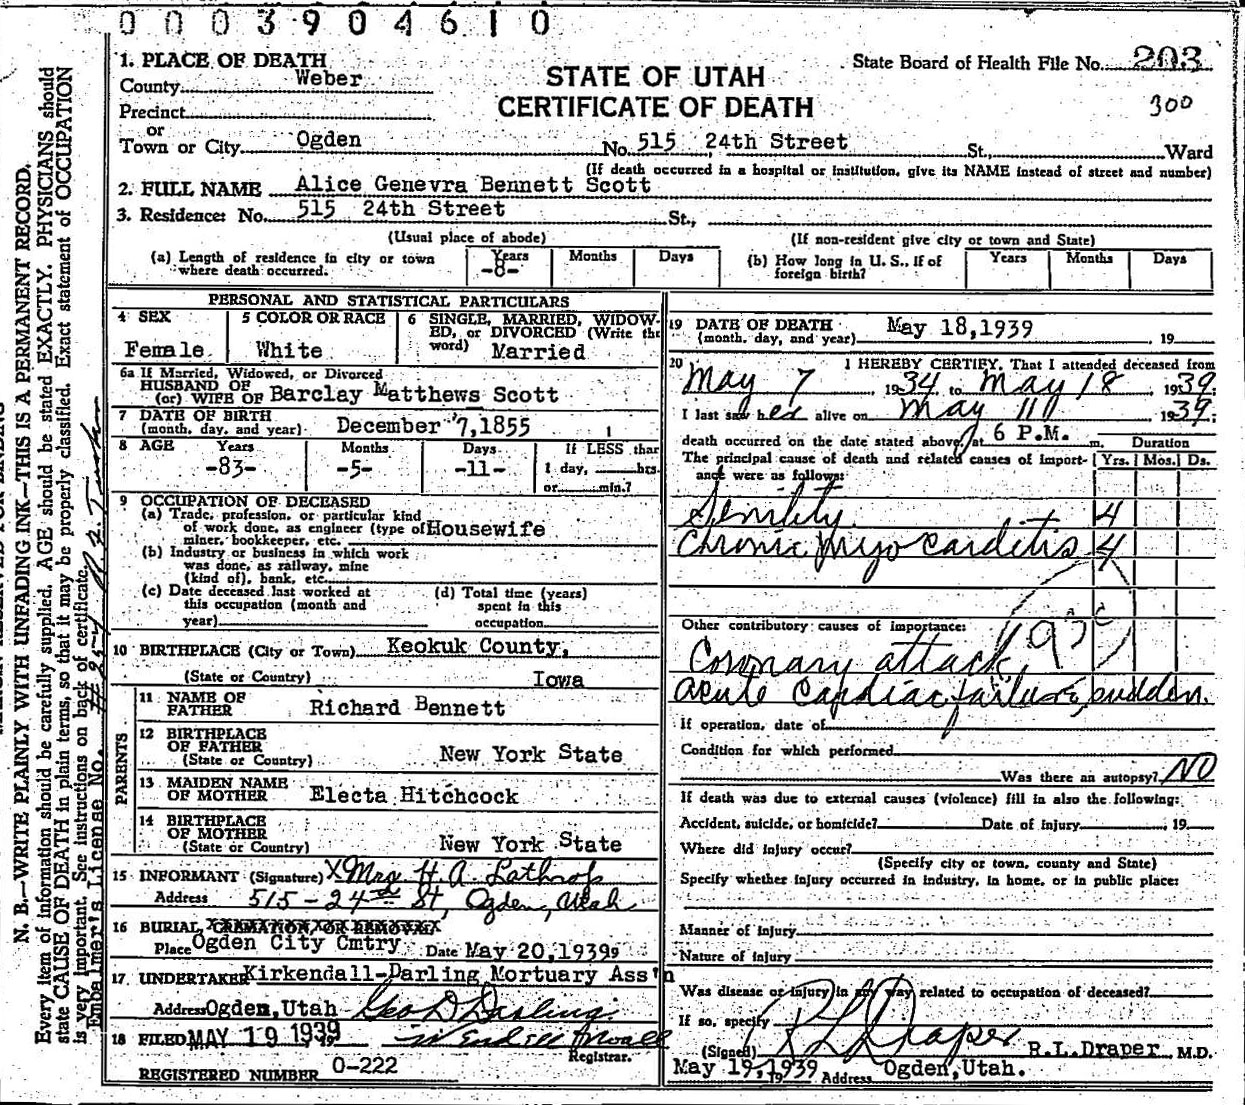 0003904610
1. PLACE OF DEATH
County Weber
State Board of Health File No. 203
STATE OF UTAH
CERTIFICATE OF DEATH
300
Precinct
or
Town or City Ogden No. 515 24th Street St., Ward
(If death occurred in a hospital or institution, give its NAME instead of street and number)
2. FULL NAME Alice Genevra Bennett Scott
3. Residence: No. 515 24th Street St.,
(Usual place of abode) (If non-resident give city or town and State)
(a) Length of residence in city or town where death occurred. Years -8- Months Days
(b) How long in U. S., if of foreign birth? Years Months Days
PERSONAL AND STATISTICAL PARTICULARS
4 SEX Female
5 COLOR OR RACE White
6 SINGLE, MARRIED, WIDOWED, or DIVORCED (Write the word) Married
6a If Married, Widowed, or Divorced
HUSBAND OF
(or) WIFE OF Barclay Matthews Scott
7 DATE OF BIRTH
(month, day, and year) December 7,1855
8 AGE Years -83- Months -5- Days -11- If LESS than
1 day, hrs.
or min.?
9 OCCUPATION OF DECEASED
(a) Trade, profession, or particular kind
of work done, as engineer (type of Housewife
miner, bookkeeper, etc.
(b) Industry or business in which work
was done, as railway, mine
(kind of), bank, etc.
(c) Date deceased last worked at
this occupation (month and
year)
(d) Total time (years)
spent in this
occupation
10 BIRTHPLACE (City or Town) Keokuk County,
(State or Country) Iowa
PARENTS
11 NAME OF
FATHER Richard Bennett
12 BIRTHPLACE
OF FATHER
(State or Country) New York State
13 MAIDEN NAME
OF MOTHER Electa Hitchcock
14 BIRTHPLACE
OF MOTHER
(State or Country) New York State
15 INFORMANT (Signature) X Mrs. H. A. Lathrop
Address 515-24th St, Ogden, Utah
16 BURIAL, CREMATION, OR REMOVAL
Place Ogden City Cmtry Date May 20,19399
17 UNDERTAKER Kirkendall-Darling Mortuary Ass'n
Address Ogden,Utah Geo D Darling
18 FILED MAY 19 1939
Registrar.
REGISTERED NUMBER 0-222
19 DATE OF DEATH
(month, day, and year) May 18,1939 19
20 I HEREBY CERTIFY, That I attended deceased from
May 7 1934 to May 18 1939
I last saw her alive on May 11 1939;
death occurred on the date stated above, at 6 P.M. m. Duration
The principal cause of death and related causes of importance were as follows: Yrs. Mos. Ds.
Senility 4
Chronic Myocarditis 4
Other contributory causes of importance: 93c
Coronary attack,
acute cardiac failure, sudden.
If operation, date of
Condition for which performed
Was there an autopsy? NO
If death was due to external causes (violence) fill in also the following:
Accident, suicide, or homicide? Date of injury 19
Where did injury occur?
(Specify city or town, county and State)
Specify whether injury occurred in industry, in home, or in public place:
Manner of injury
Nature of injury
Was disease or injury in any way related to occupation of deceased?
If so, specify
(Signed) R L Draper R.L.Draper M.D.
May 19,1939 19 Address Ogden,Utah.
N. B.—WRITE PLAINLY WITH UNFADING INK—THIS IS A PERMANENT RECORD.
Every item of information should be carefully supplied. AGE should be stated EXACTLY. PHYSICIANS should
state CAUSE OF DEATH in plain terms, so that it may be properly classified. Exact statement of OCCUPATION
is very important. See instructions on back of certificate.
Embalmer's License No.